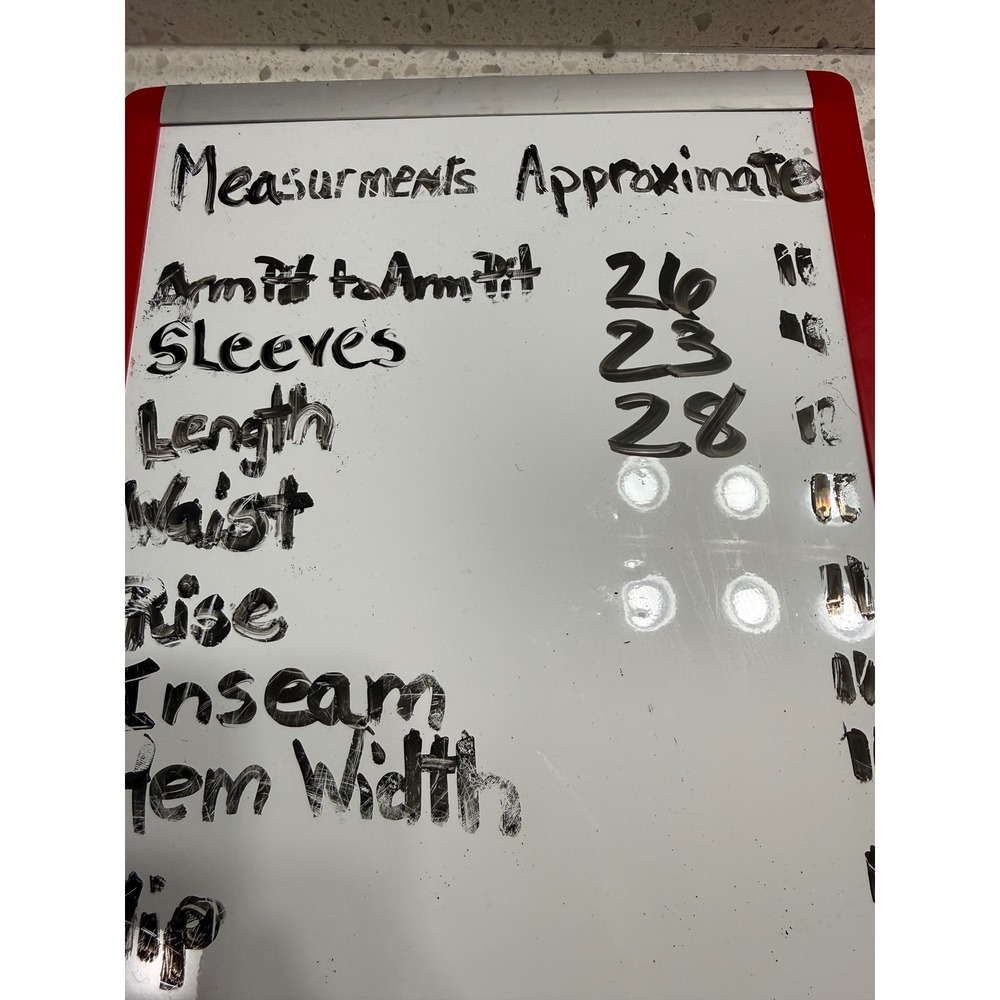 Measurments Approximate
ArmPit to ArmPit 26 "
SLeeves 23 "
Length 28 "
Waist "
Rise "
Inseam "
Hem Width "
Hip "